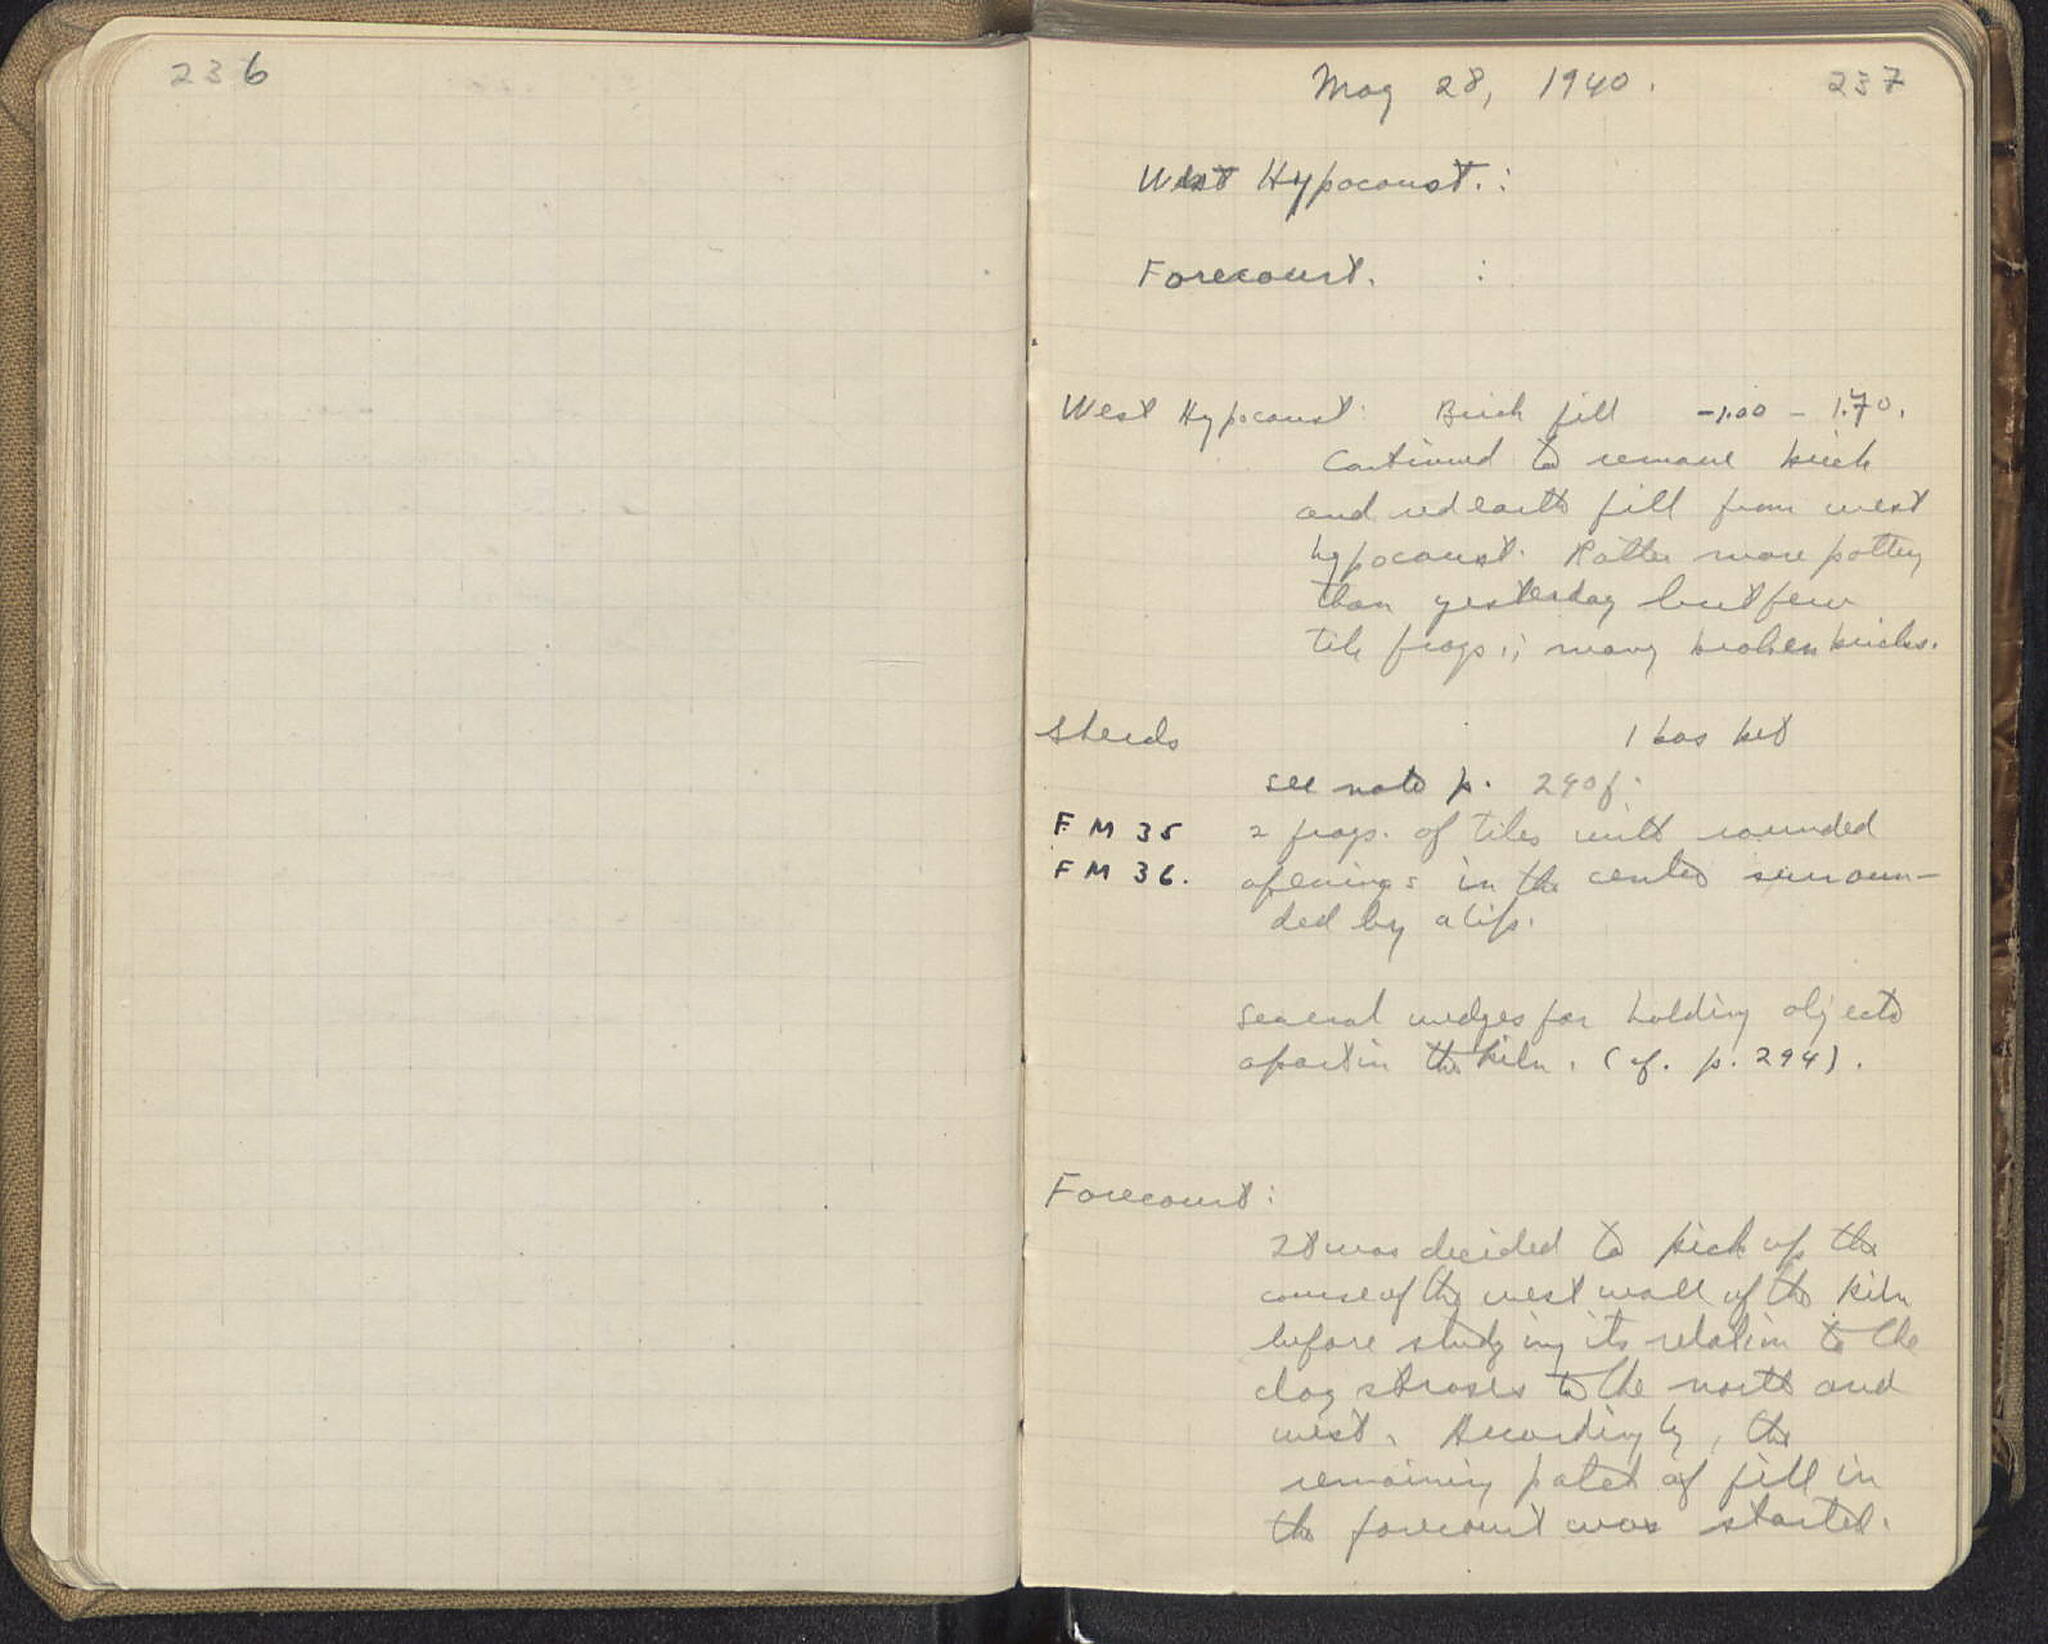 236
May 28, 1940. 237
West Hypocaust. :
Forecourt. :
West Hypocaust: Brick fill -1.00 - 1.70.
Continued to remove brick
and red earth fill from west
hypocaust. Rather more pottery
than yesterday but few
tile frags.; many broken bricks.
Sherds 1 basket
see note p. 290f.
FM 35 2 frags. of tiles with rounded
FM 36. openings in the center surroun-
ded by a lip.
several wedges for holding objects
apart in the kiln. (cf. p. 294).
Forecourt:
It was decided to pick up the
course of the west wall of the kiln
before studying its relation to the
clay stroses to the north and
west. Accordingly, the
remaining patch of fill in
the forecourt was started.